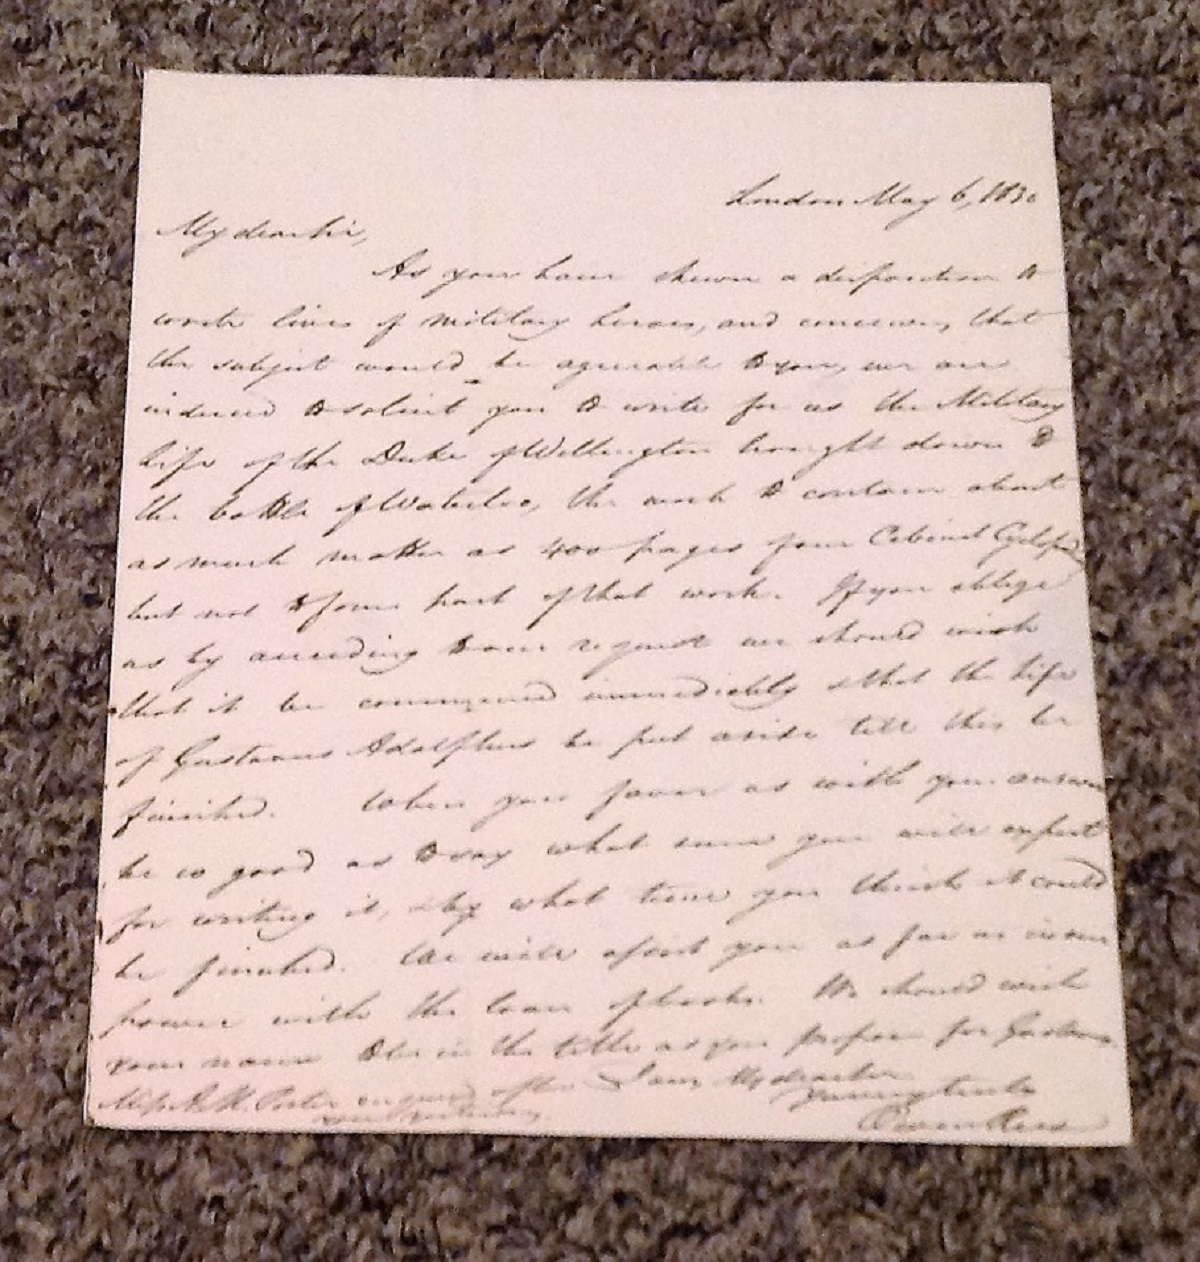 London May 6, 1830
My dear Sir,
As you have shewn a disposition to
write lives of military heroes, and conceiving that
the subject would be agreeable to you, we are
induced to solicit you to write for us the Military
Life of the Duke of Wellington brought down to
the battle of Waterloo, the work to contain about
as much matter as 400 pages of our Cabinet Cyclopd
but not to form part of that work. If you oblige
us by acceeding to our request we should wish
that it be commenced immediately & that the life
of Gustavus Adolphus be put aside till this be
finished. When you favor us with your answer
be so good as to say what sum you will expect
for writing it, & by what time you think it could
be finished. We will assist you as far as in our
power with the loan of books. We should wish
your name to be in the title as you propose for Gustavus
I am, My dear Sir
Miss Porter enquired after
Yours truly
Owen Rees